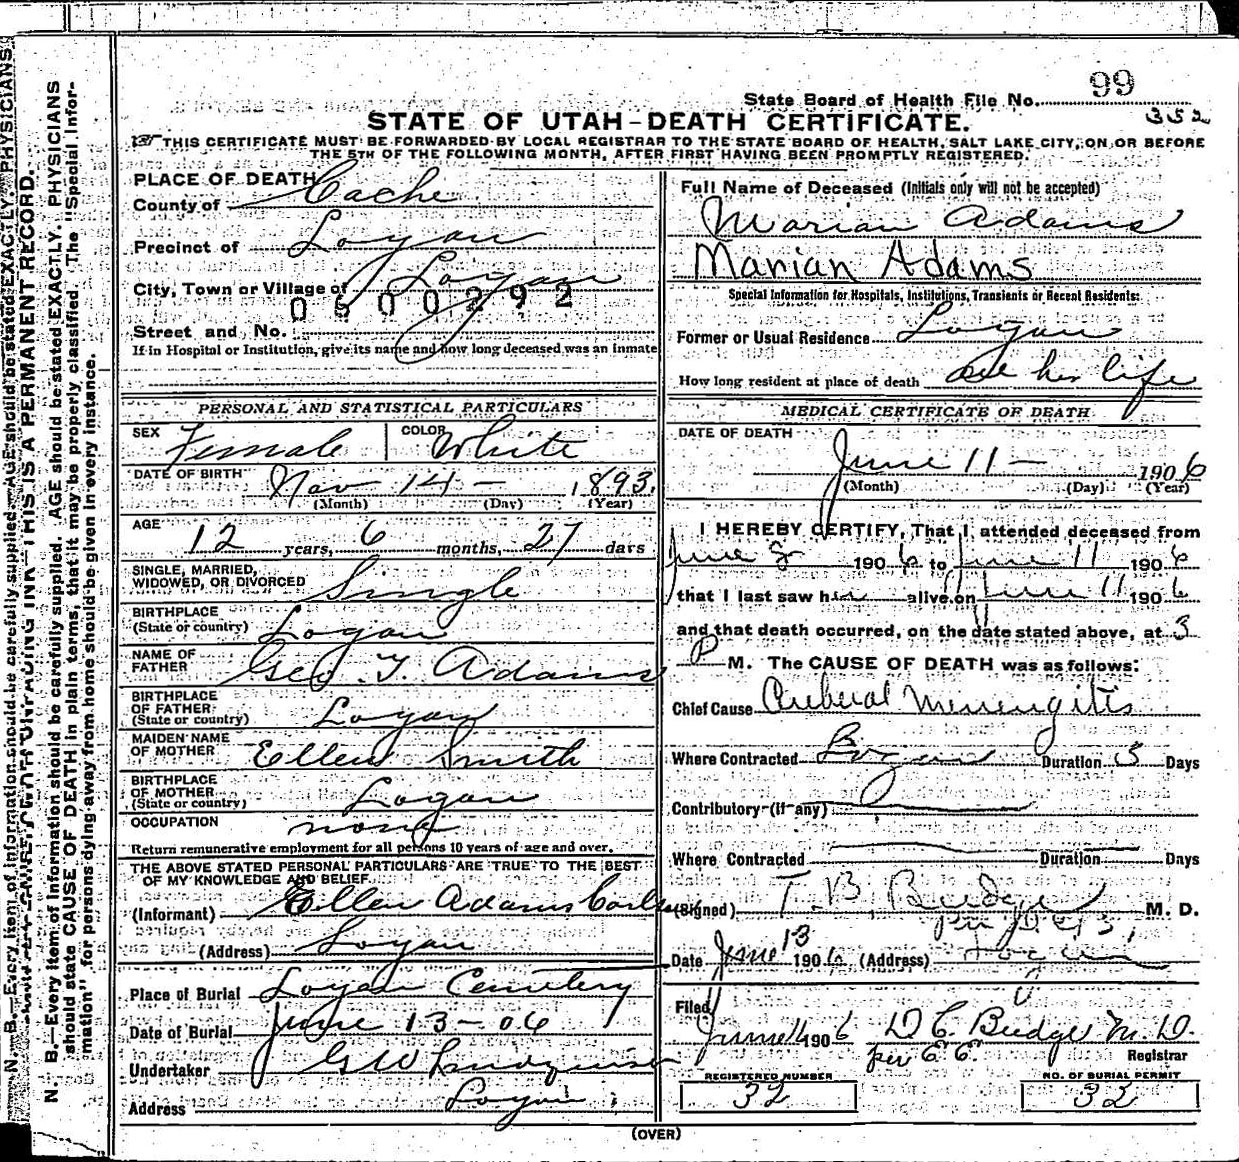 99
State Board of Health File No.
352
STATE OF UTAH-DEATH CERTIFICATE.
THIS CERTIFICATE MUST BE FORWARDED BY LOCAL REGISTRAR TO THE STATE BOARD OF HEALTH, SALT LAKE CITY, ON OR BEFORE
THE 5TH OF THE FOLLOWING MONTH, AFTER FIRST HAVING BEEN PROMPTLY REGISTERED.
PLACE OF DEATH
County of Cache
Precinct of Logan
City, Town or Village of Logan
0500292
Street and No.
If in Hospital or Institution, give its name and how long deceased was an inmate
PERSONAL AND STATISTICAL PARTICULARS
SEX Female COLOR White
DATE OF BIRTH Nov 14 - 1893.
(Month) (Day) (Year)
AGE 12 years, 6 months, 27 days
SINGLE, MARRIED,
WIDOWED, OR DIVORCED Single
BIRTHPLACE
(State or country) Logan
NAME OF
FATHER Geo. T. Adams
BIRTHPLACE
OF FATHER
(State or country) Logan
MAIDEN NAME
OF MOTHER Ellen Smith
BIRTHPLACE
OF MOTHER
(State or country) Logan
OCCUPATION none
Return remunerative employment for all persons 10 years of age and over.
THE ABOVE STATED PERSONAL PARTICULARS ARE TRUE TO THE BEST
OF MY KNOWLEDGE AND BELIEF
(Informant) Ellen Adams
(Address) Logan
Place of Burial Logan Cemetery
Date of Burial June 13-06
Undertaker G W Lindquist
Address Logan
Full Name of Deceased (Initials only will not be accepted)
Marian Adams
Marian Adams
Special Information for Hospitals, Institutions, Transients or Recent Residents:
Former or Usual Residence Logan
How long resident at place of death all her life
MEDICAL CERTIFICATE OF DEATH
DATE OF DEATH
June 11 - 1906
(Month) (Day) (Year)
I HEREBY CERTIFY, That I attended deceased from
June 8 1906 to June 11 1906
that I last saw her alive on June 11 1906
and that death occurred, on the date stated above, at 3
P M. The CAUSE OF DEATH was as follows:
Chief Cause Cerebral Menengitis
Where Contracted Logan Duration 3 Days
Contributory (if any)
Where Contracted Duration Days
(Signed) T. B. Budge M. D.
Date June 13 1906 (Address) Logan
Filed June 1906 D C. Budge M. D.
per E. E. Registrar
REGISTERED NUMBER
32
NO. OF BURIAL PERMIT
32
(OVER)
N. B.—Every item of information should be carefully supplied. AGE should be stated EXACTLY. PHYSICIANS
should state CAUSE OF DEATH in plain terms, that it may be properly classified. The "Special Infor-
mation" for persons dying away from home should be given in every instance.
THIS IS A PERMANENT RECORD.